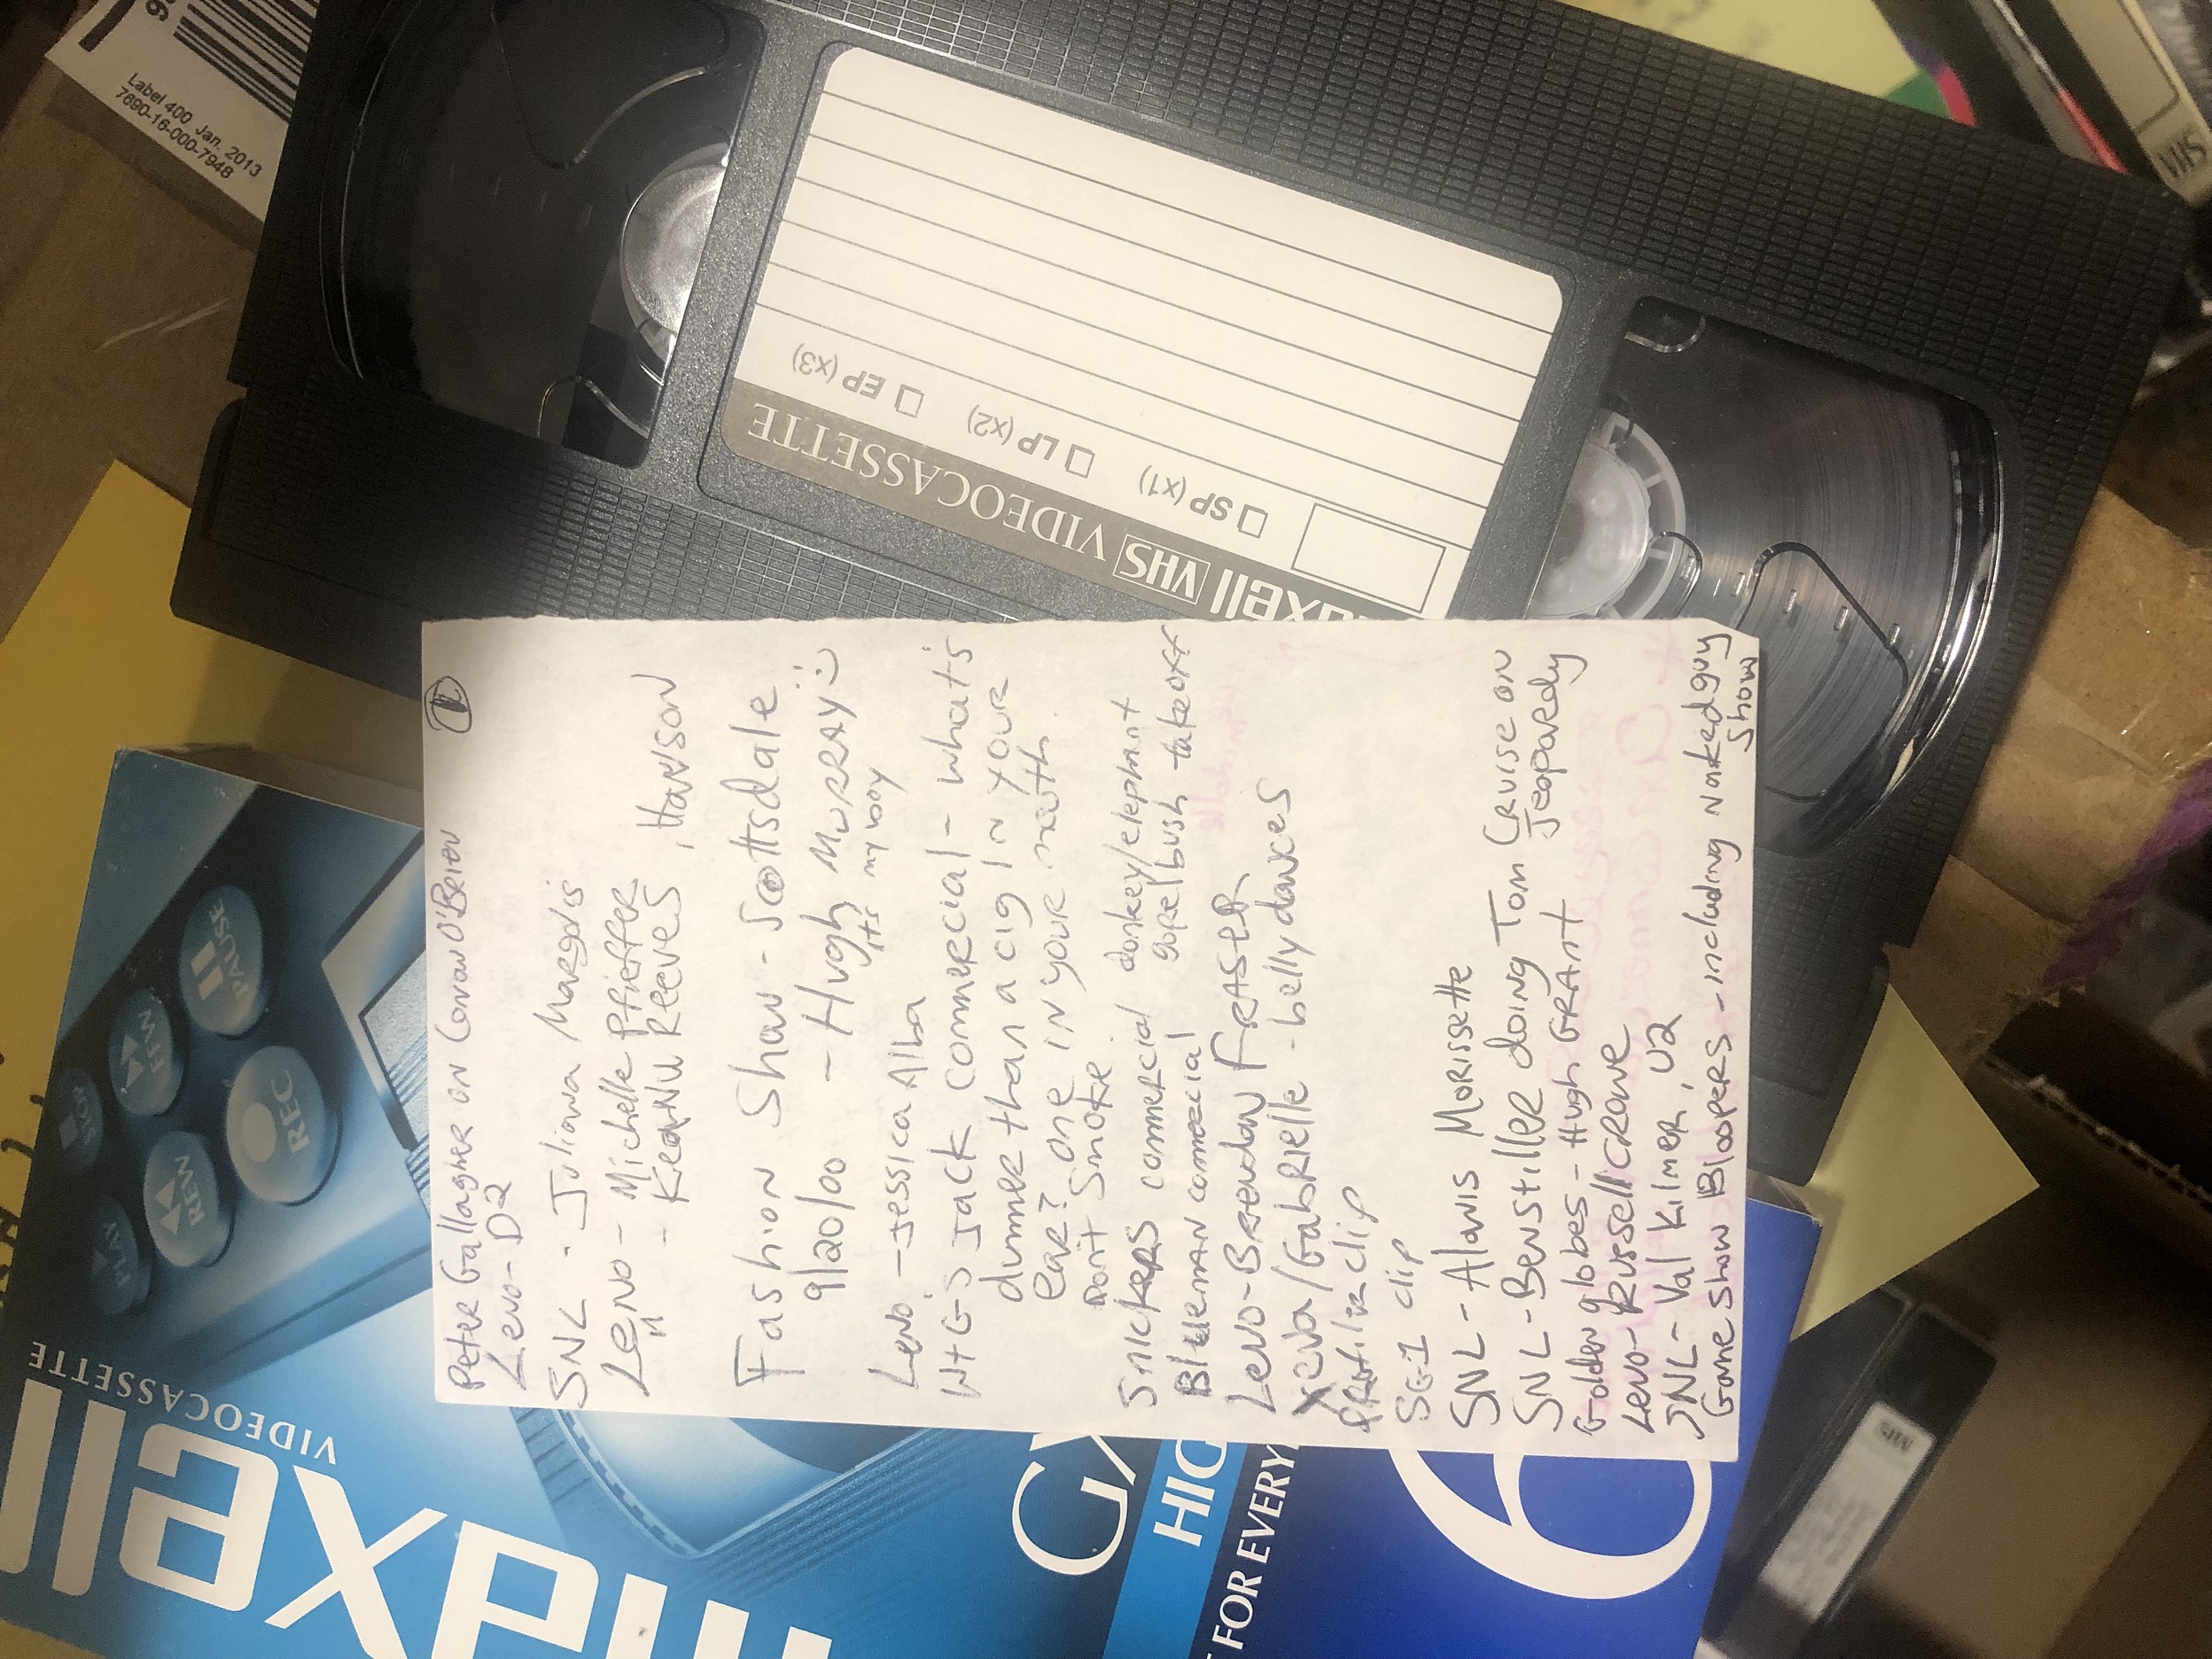 ①
Peter Gallagher on Conan O'Brien
Leno - D2
SNL - Juliana Margolis
Leno - Michelle Pfieffer
" -- Keanu Reeves, Hanson
Fashion Show - Scottsdale
9/20/00 - Hugh Murray :)
its my boy
Leno - Jessica Alba
W+G-S Jack commercial - what's
dummer than a cig in your
ear? one in your mouth.
Don't Smoke.
Snickers commercial donkey/elephant
gore/bush takeoff
Blueman commercial
Leno - Brendan Fraser
Xena/Gabrielle - belly dances
clip
SG-1 clip
SNL - Alanis Morissette
SNL - Ben stiller doing Tom Cruise on
Jeopardy
Golden globes - Hugh Grant
Leno - Russell Crowe
SNL - Val Kilmer, U2
Game Show Bloopers - including naked guy
show
maxell VHS VIDEOCASSETTE
SP (x1) LP (x2) EP (x3)
Label 400 Jan. 2013
7690-16-000-7948
VHS
PLAY
REW
STOP
F.FW
REC
PAUSE
maxell
VIDEOCASSETTE
GX
HIG
FOR EVERY
6